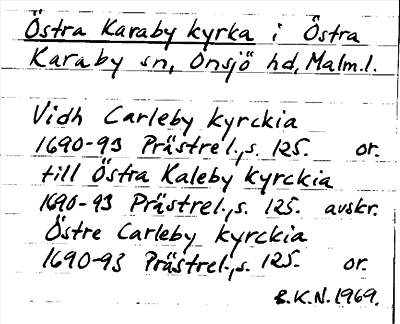 Östra Karaby kyrka i Östra
Karaby sn, Onsjö hd, Malm.l.
Vidh Carleby kyrckia
1690-93 Prästrel., s. 125. or.
till Östra Kaleby kyrckia
1690-93 Prästrel., s. 125. avskr.
Östre Carleby kyrckia
1690-93 Prästrel., s. 125. or.
E.K.N. 1969.